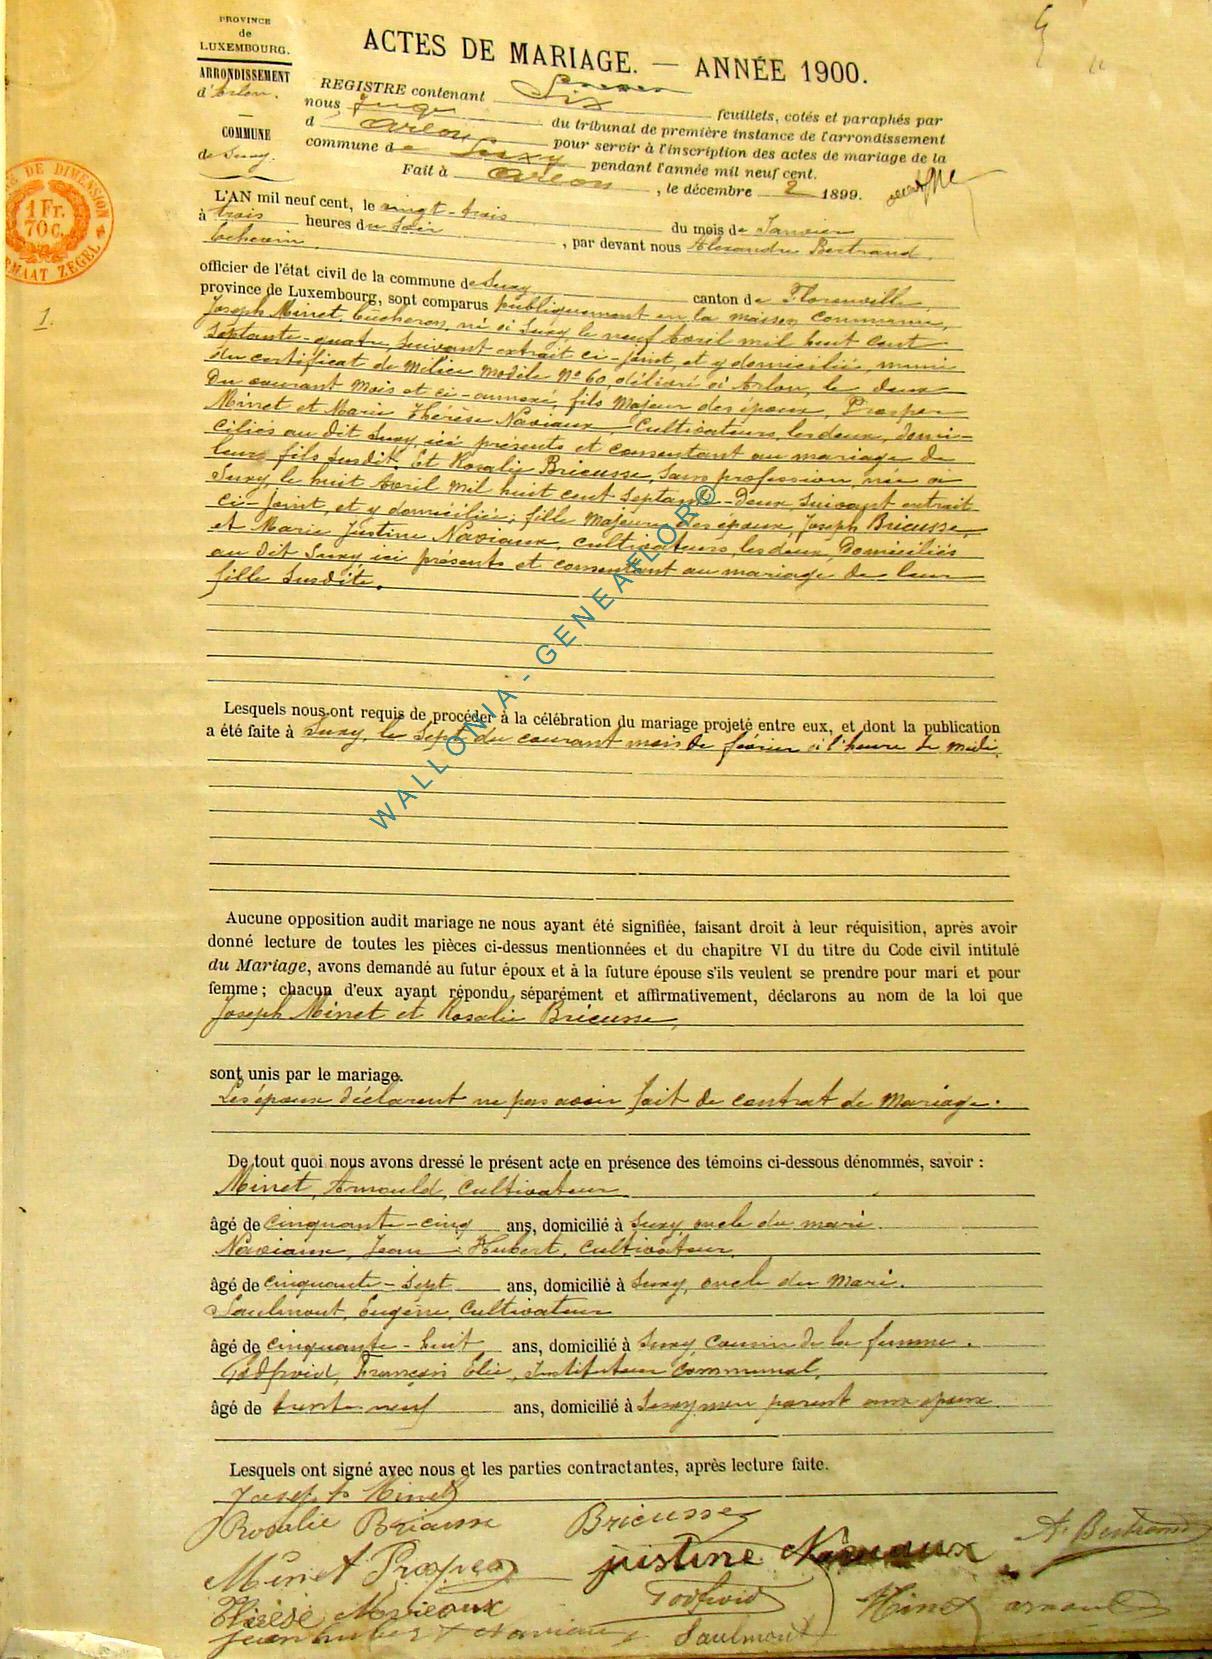 PROVINCE
de
LUXEMBOURG.
ARRONDISSEMENT
d'Arlon.
COMMUNE
de Suxy.
ACTES DE MARIAGE. — ANNÉE 1900.
REGISTRE contenant Six feuillets, cotés et paraphés par
nous Juge du tribunal de première instance de l'arrondissement
d Arlon pour servir à l'inscription des actes de mariage de la
commune de Suxy pendant l'année mil neuf cent.
Fait à Arlon, le décembre 2 1899.
TIMBRE DE DIMENSION
1 Fr.
70 c.
FORMAAT ZEGEL
1.
L'AN mil neuf cent, le vingt-trois du mois de Janvier
à trois heures du Soir, par devant nous Alexandre Bertrand,
Echevin
officier de l'état civil de la commune de Suxy canton de Florenville
province de Luxembourg, sont comparus publiquement en la maison commune,
Joseph Minet, bûcheron, né à Suxy le neuf Avril mil huit cent
Septante-quatre, suivant extrait ci-joint, et y domicilié, muni
du certificat de milice modèle N° 60, délivré à Arlon, le deux
du courant mois et ci-annexé, fils majeur des époux, Prosper
Minet et Marie Thérèse Naviaux Cultivateurs, les deux, domi-
ciliés au dit Suxy, ici présents et consentant au mariage de
leur fils susdit. Et Rosalie Bricusse, Sans profession, née à
Suxy, le huit Avril mil huit cent Septante-deux, suivant extrait
ci-joint, et y domiciliée; fille majeure des époux, Joseph Bricusse,
et Marie Justine Naviaux, cultivateurs, les deux Domiciliés
au dit Suxy ici présents et consentant au mariage de leur
fille susdite.
WALLONIA - GENEAFLOR©
Lesquels nous ont requis de procéder à la célébration du mariage projeté entre eux, et dont la publication
a été faite à Suxy, le Sept du courant mois de février à l'heure de midi.
Aucune opposition audit mariage ne nous ayant été signifiée, faisant droit à leur réquisition, après avoir
donné lecture de toutes les pièces ci-dessus mentionnées et du chapitre VI du titre du Code civil intitulé
du Mariage, avons demandé au futur époux et à la future épouse s'ils veulent se prendre pour mari et pour
femme; chacun d'eux ayant répondu séparément et affirmativement, déclarons au nom de la loi que
Joseph Minet et Rosalie Bricusse,
sont unis par le mariage.
Les époux déclarent ne pas avoir fait de contrat de mariage.
De tout quoi nous avons dressé le présent acte en présence des témoins ci-dessous dénommés, savoir :
Minet, Arnould, Cultivateur
âgé de cinquante-cinq ans, domicilié à Suxy, oncle du mari
Naviaux, Jean Hubert, Cultivateur,
âgé de cinquante-Sept ans, domicilié à Suxy, oncle du mari.
Saulmont, Eugène, Cultivateur
âgé de cinquante-huit ans, domicilié à Suxy cousin de la femme.
Godfroid, François Elie, Instituteur Communal,
âgé de trente neuf ans, domicilié à Suxy non parent aux époux
Lesquels ont signé avec nous et les parties contractantes, après lecture faite.
Joseph Minet
Rosalie Bricusse Bricusse A. Bertrand
Minet Prosper justine Naviaux
Thérèse Naviaux Godfroid Minet arnould
jean hubert Naviaux Saulmont